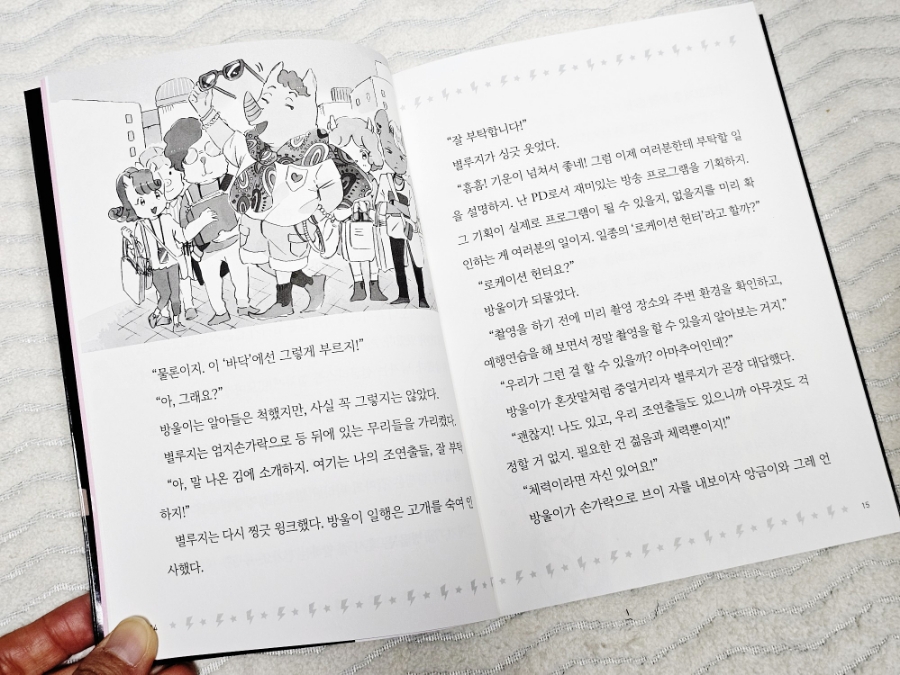 “물론이지. 이 ‘바닥’에선 그렇게 부르지!”
“아, 그래요?”
방울이는 알아들은 척했지만, 사실 꼭 그렇지는 않았다.
별루지는 엄지손가락으로 등 뒤에 있는 무리들을 가리켰다.
“아, 말 나온 김에 소개하지. 여기는 나의 조연출들, 잘
하지!”
별루지는 다시 찡긋 윙크했다. 방울이 일행은 고개를 숙여
사했다.
“잘 부탁합니다!”
별루지가 싱긋 웃었다.
“흠흠! 기운이 넘쳐서 좋네! 그럼 이제 여러분한테 부탁할 일
을 설명하지. 난 PD로서 재미있는 방송 프로그램을 기획하지.
그 기획이 실제로 프로그램이 될 수 있을지, 없을지를 미리 확
인하는 게 여러분의 일이지. 일종의 ‘로케이션 헌터’라고 할까?”
“로케이션 헌터요?”
방울이가 되물었다.
“촬영을 하기 전에 미리 촬영 장소와 주변 환경을 확인하고,
예행연습을 해 보면서 정말 촬영을 할 수 있을지 알아보는 거지.”
“우리가 그런 걸 할 수 있을까? 아마추어인데?”
방울이가 혼잣말처럼 중얼거리자 별루지가 곧장 대답했다.
“괜찮지! 나도 있고, 우리 조연출들도 있으니까 아무것도 걱
정할 거 없지. 필요한 건 젊음과 체력뿐이지!”
“체력이라면 자신 있어요!”
방울이가 손가락으로 브이 자를 내보이자 앙금이와 그레 언
15